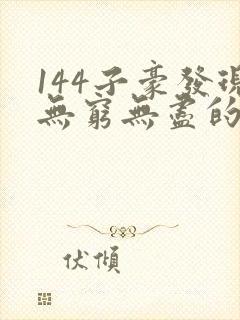 144子豪發現
無窮無盡的
伏傾